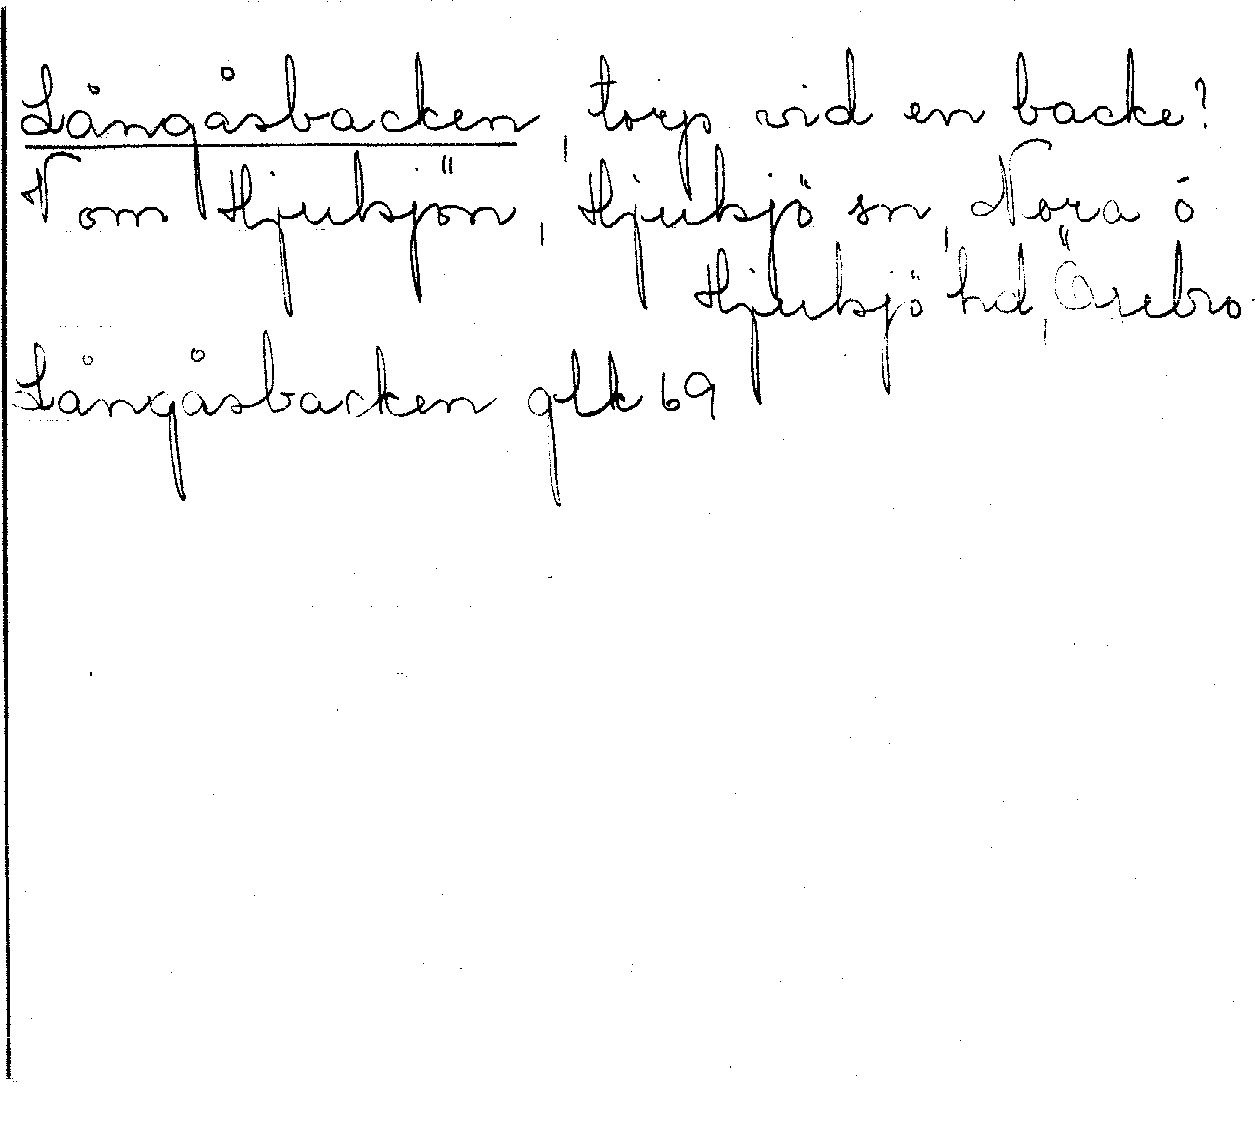 Långåsbacken, torp vid en backe?
N om Hjulsjön, Hjulsjö sn, Nora ó
Hjulsjö hd, Örebro.
Långåsbacken glk 69